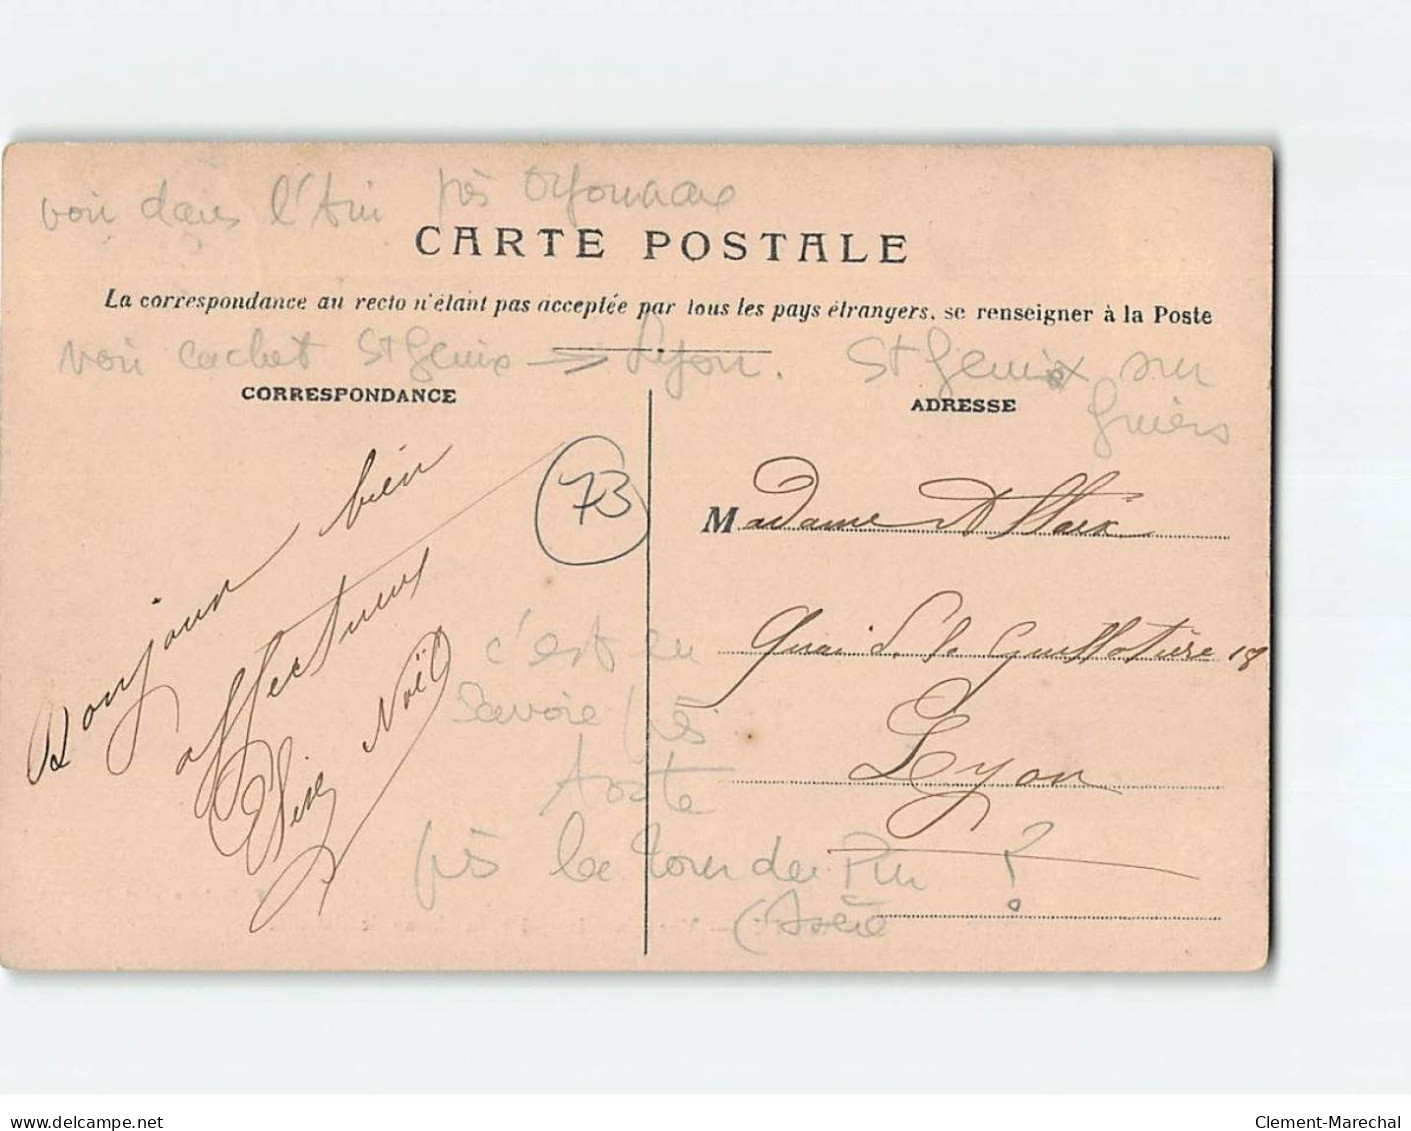 voir dans l'Ain près Oyonnax
CARTE POSTALE
La correspondance au recto n'étant pas acceptée par tous les pays étrangers, se renseigner à la Poste
voir cachet St Genix → Lyon. St Genix sur
Guiers
CORRESPONDANCE
ADRESSE
73
Bonjour bien
affectueux
Elise Noël
Madame
Quai de la Guillotière 18
Lyon
c'est en
Savoie près
Aoste
près la Tour du Pin ?
(Isère
delcampe.net
Clement-Marechal